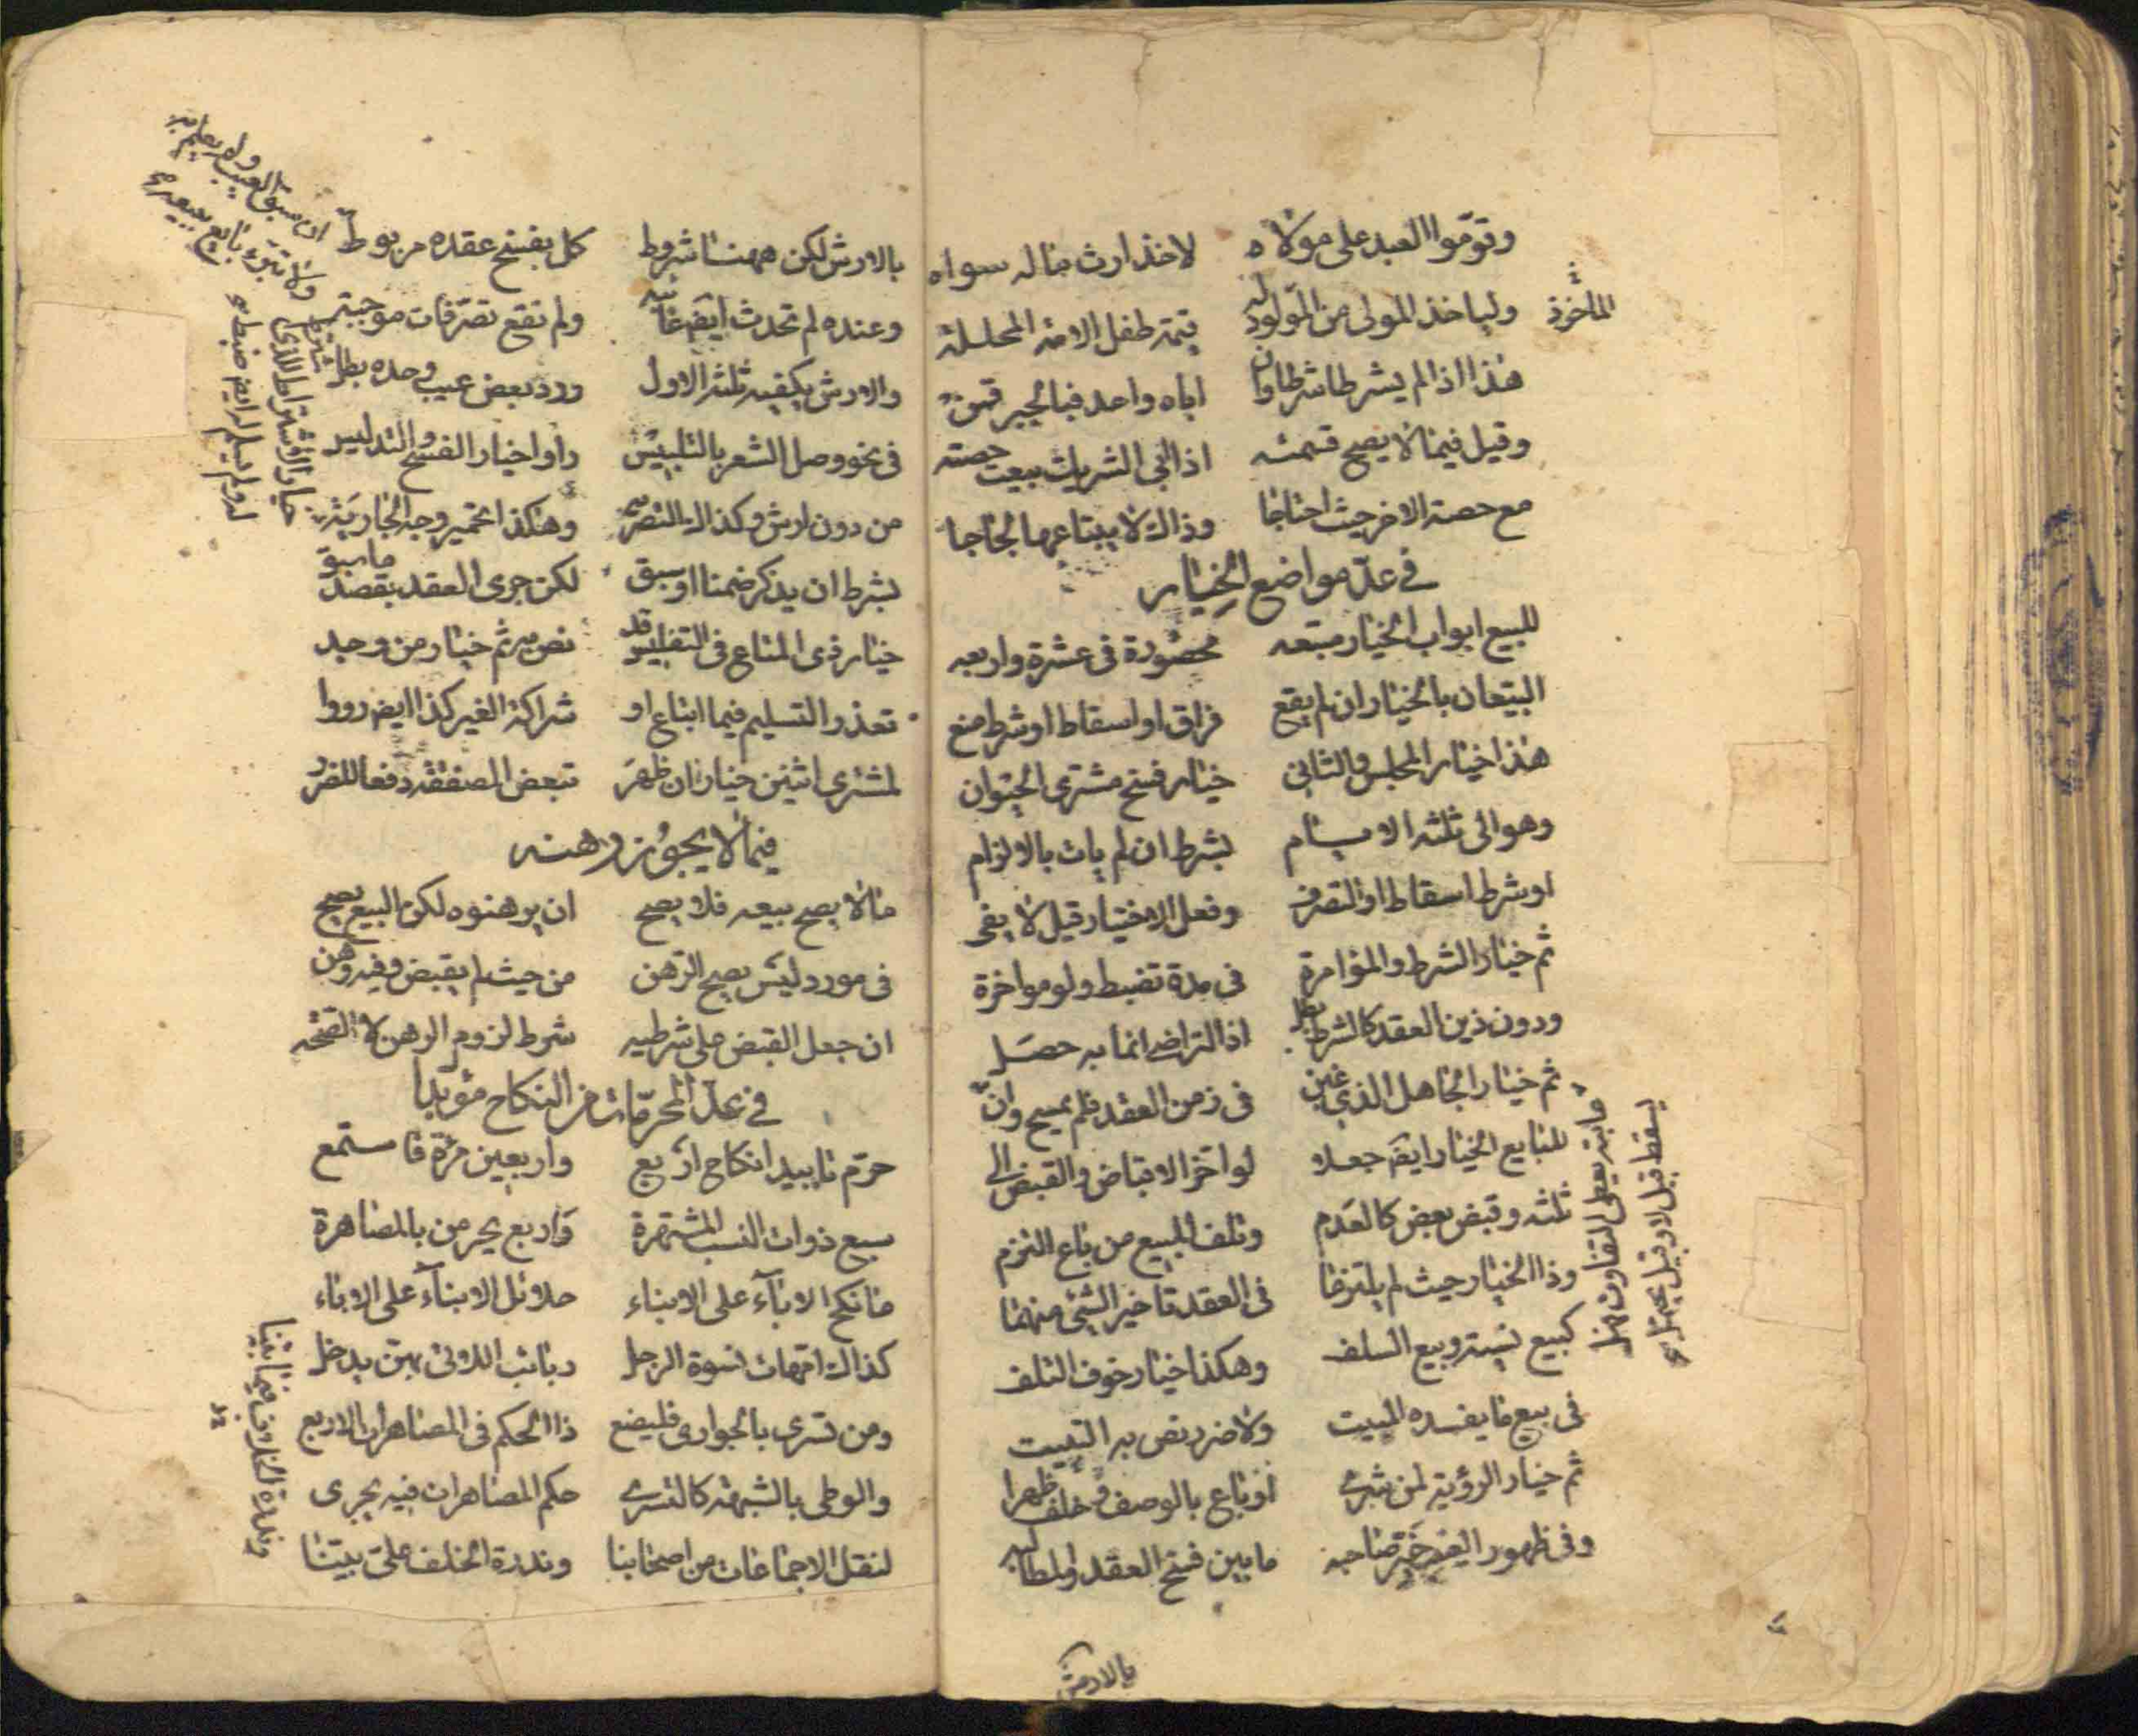 وقوّموا العبد على مولاه لاخذ ارث ماله سواه
ولياخذ المولى من المولود له قيمة طفل الامة المحللة
هذا اذا لم يشرطا شرطا وان اباه واحد فبالجبر قمن
وقيل فيما لا يصح قسمته اذا ابى الشريك بيعت حصته
مع حصة الاخر حيث احتاجا وذاك لا يبتاعها لجاجا
في عدّ مواضع الخيار
للبيع ابواب الخيار متبعه محصورة فى عشرة واربعه
البيّعان بالخيار ان لم يقع فراق او اسقاط او شرط منع
هذا خيار المجلس والثانى خيار فسخ مشترى الحيوان
وهو الى ثلثة الايام بشرط ان لم يات بالالزام
او شرط اسقاط او التصرف وفعل الاختيار قيل لا يفى
ثم خيار الشرط والمؤامرة فى مدة تضبط ولو مواخرة
ودون ذين العقد كالشرط بطل اذ التراضى انما به حصل
ثم خيار الجاهل الذى غبن فى زمن العقد فلم يمسح وان
للبايع الخيار ايضا جعلا لو اخّر الاقباض والقبض الى
ثلثة وقبض بعض كالعدم وتلف المبيع من باع التزم
وذا الخيار حيث لم يلتزما فى العقد تاخير الشئ منهما
كبيع نسية وبيع السلف وهكذا خيار خوف التلف
فى بيع ما يفسده المبيت ولا ضرر نص به التثبيت
ثم خيار الرؤية لمن شرى او باع بالوصف وخلف ظهرا
وفى ظهور العيب خيّر صاحبه ما بين فسخ العقد والمطالبه
بالارش
الماخوذ
ما به يعطى التفاوت فهل
يسقط قيل لا وقيل يحتمل
بالارش لكن ههنا شروط كل بفسخ عقده مربوط
وعنده لم تحدث ايضا غائبه ولم تقع تصرفات موجبة
والارش يكفيه ثلثة الاول ورد بعض عيب وحده بطل
فى نحو وصل الشعر بالتلبيس راوا خيار الفسخ والتدليس
من دون ارش وكذا التصرية وهكذا تحمير وجه الجارية
بشرط ان يذكر ضمنا او سبق لكن جرى العقد بقصد ما سبق
خيار ذى المتاع فى التفليس قد نص به ثم خيار من وجد
تعذر التسليم فيما ابتاع او شراكة الغير كذا ايضا رووا
لمشترى اثنين خيار ان ظهر تبعض الصفقة دفعا للضرر
فيما لا يجوز رهنه
ما لا يصح بيعه فلا يصح ان يرهنوه لكن البيع يصح
فى مورد ليس يصح الرهن من حيث لم يقبض وفيه وهن
ان جعل القبض على شرطيه شرط لزوم الرهن لا الصحه
في عدّ المحرّمات من النكاح مؤبدا
حرّم تابيدا نكاح اربع واربعين مرّة فاستمع
سبع ذوات النسب المشتهرة واربع يحرمن بالمصاهرة
ما نكح الاباء على الابناء حلائل الابناء على الاباء
كذاك امهات نسوة الرجل ربائب اللاتى بهن يدخل
ومن تسرى بالجوارى فليضع ذا الحكم فى المصاهرات الاربع
والوطى بالشبهة كالتسرى حكم المصاهرات فيه يجرى
لنقل الاجماعات من اصحابنا وندرة الخلف على بيتنا
ان سبق العيب ولم يعلم به
ولا تبرء بايع ببيعه
وندرة الخلاف فيما بيننا